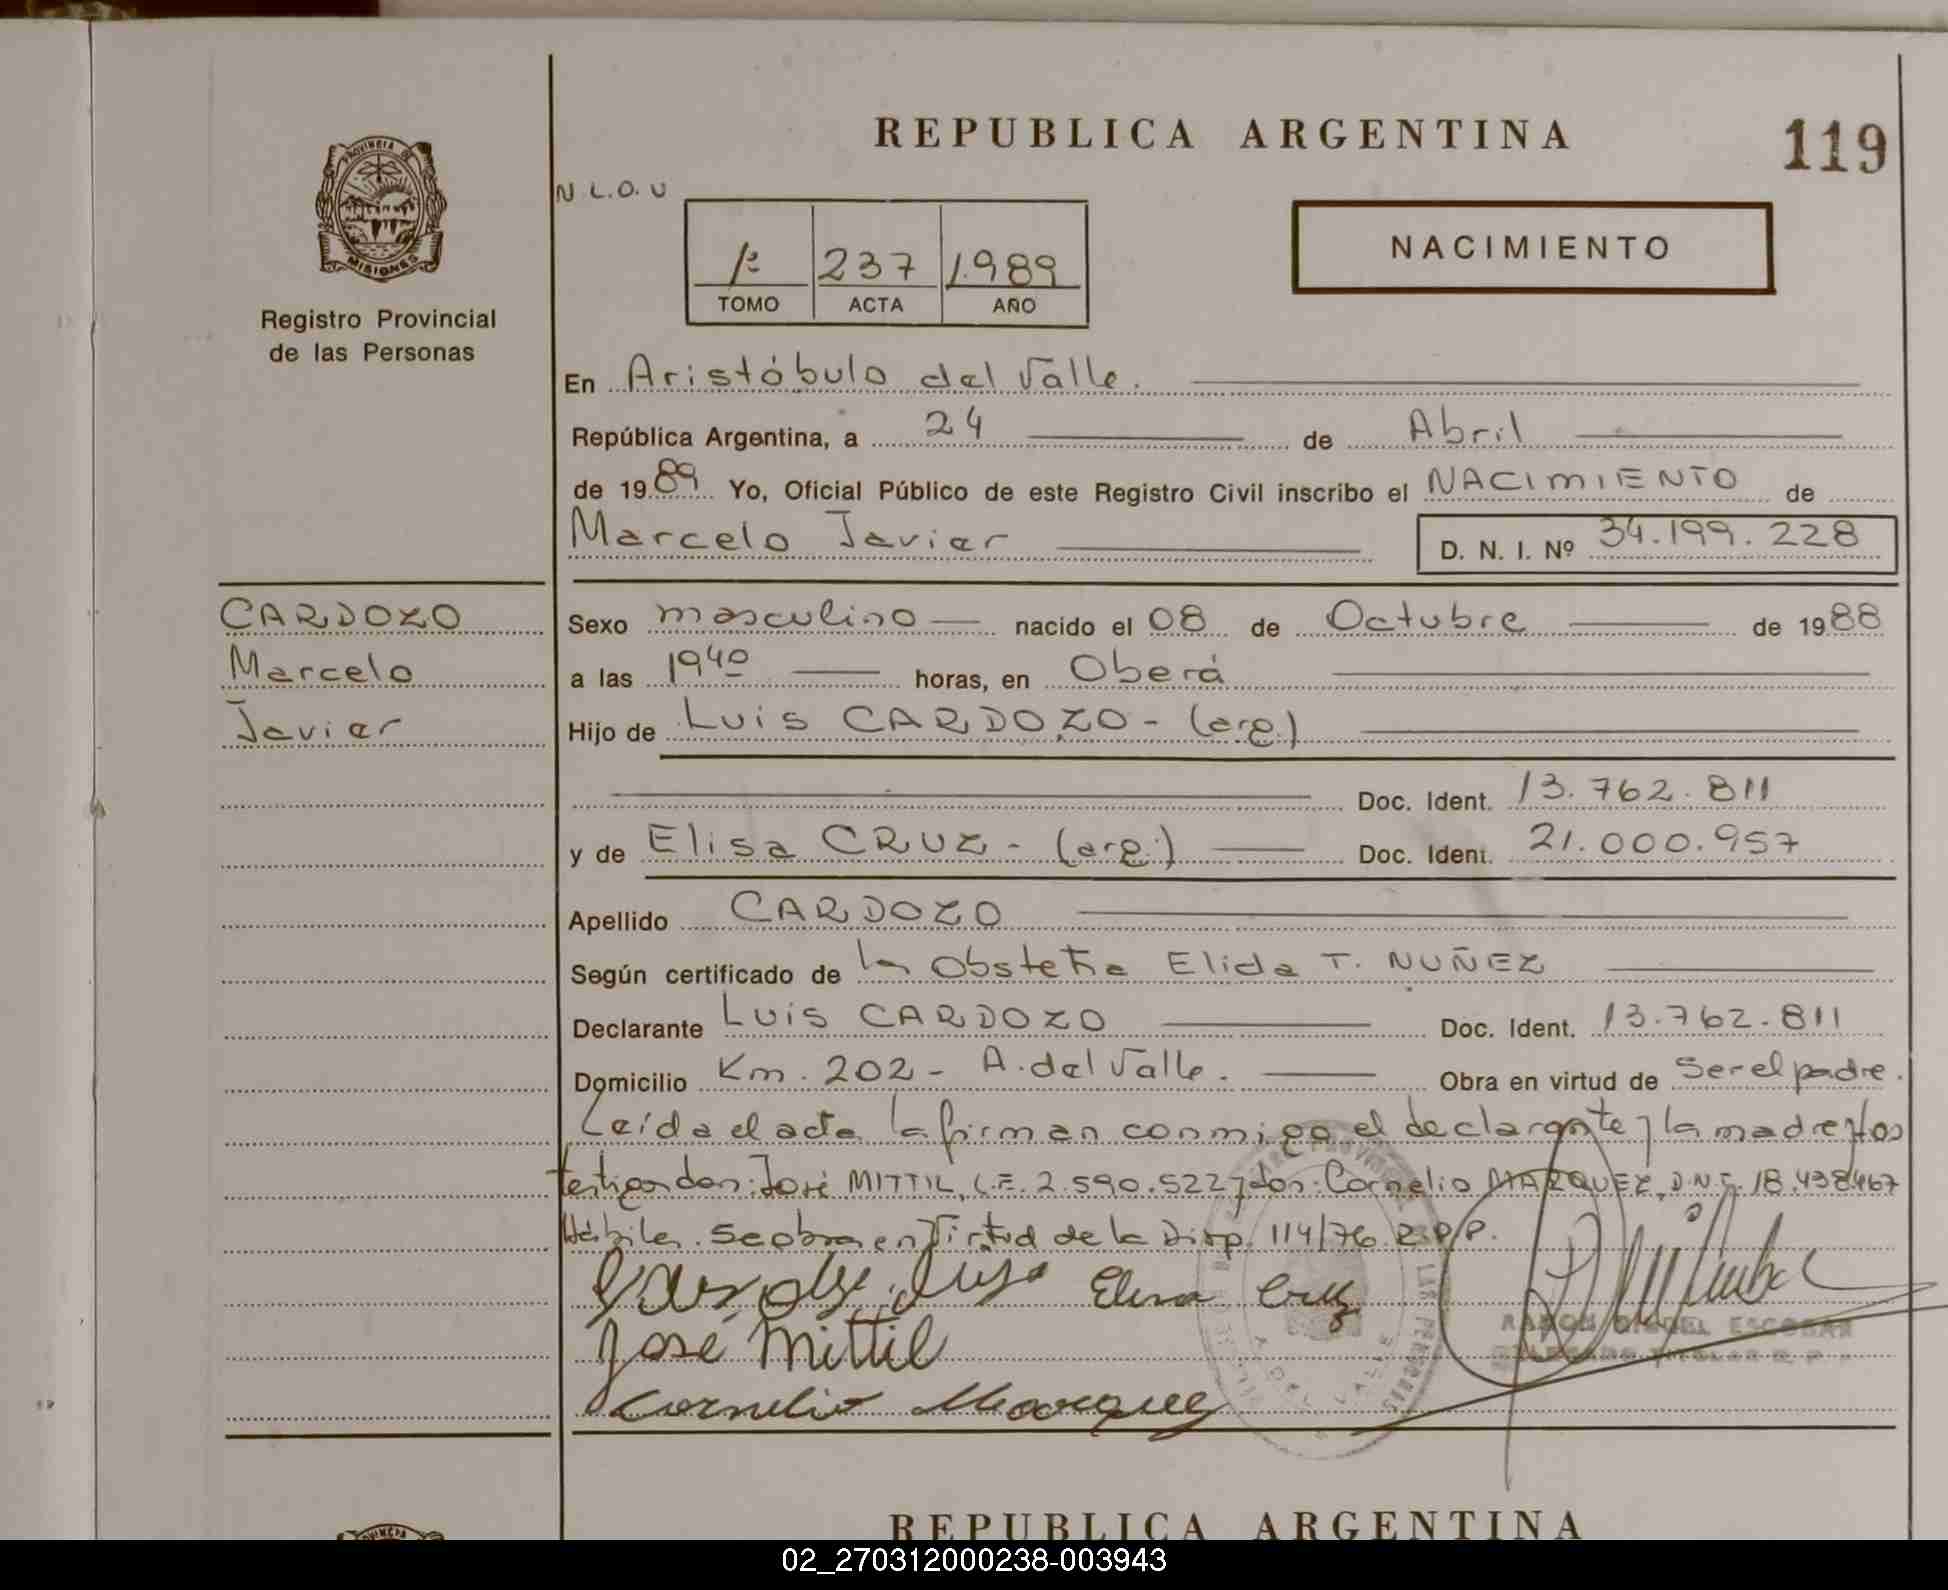 REPUBLICA ARGENTINA
119
PROVINCIA DE
MISIONES
Registro Provincial
de las Personas
N.L.O.U
1º 237 1.989
TOMO ACTA AÑO
NACIMIENTO
En Aristóbulo del Valle.
República Argentina, a 24 de Abril
de 1989 Yo, Oficial Público de este Registro Civil inscribo el NACIMIENTO de
Marcelo Javier
D. N. I. Nº 34.199.228
CARDOZO
Marcelo
Javier
Sexo masculino nacido el 08 de Octubre de 1988
a las 1940 horas, en Oberá
Hijo de Luis CARDOZO - (arg.)
Doc. Ident. 13.762.811
y de Elisa CRUZ - (arg.) Doc. Ident. 21.000.957
Apellido CARDOZO
Según certificado de la Obstetra Elida T. NUÑEZ
Declarante Luis CARDOZO Doc. Ident. 13.762.811
Domicilio Km. 202 - A. del Valle. Obra en virtud de ser el padre.
Leída el acta la firman conmigo el declarante y la madre y los
testigos don: José MITTIL, L.E. 2.590.522 y don: Cornelio MARQUEZ, D.N.I. 18.438467
Hábiles. Se obra en Virtud de la Disp. 114/76 R.P.P.
Elisa Cruz
José Mittil
RAMON MIGUEL ESCOBAR
DELEGADO TITULAR R.P.P.
Cornelio Marquez
REPUBLICA ARGENTINA
02_270312000238-003943